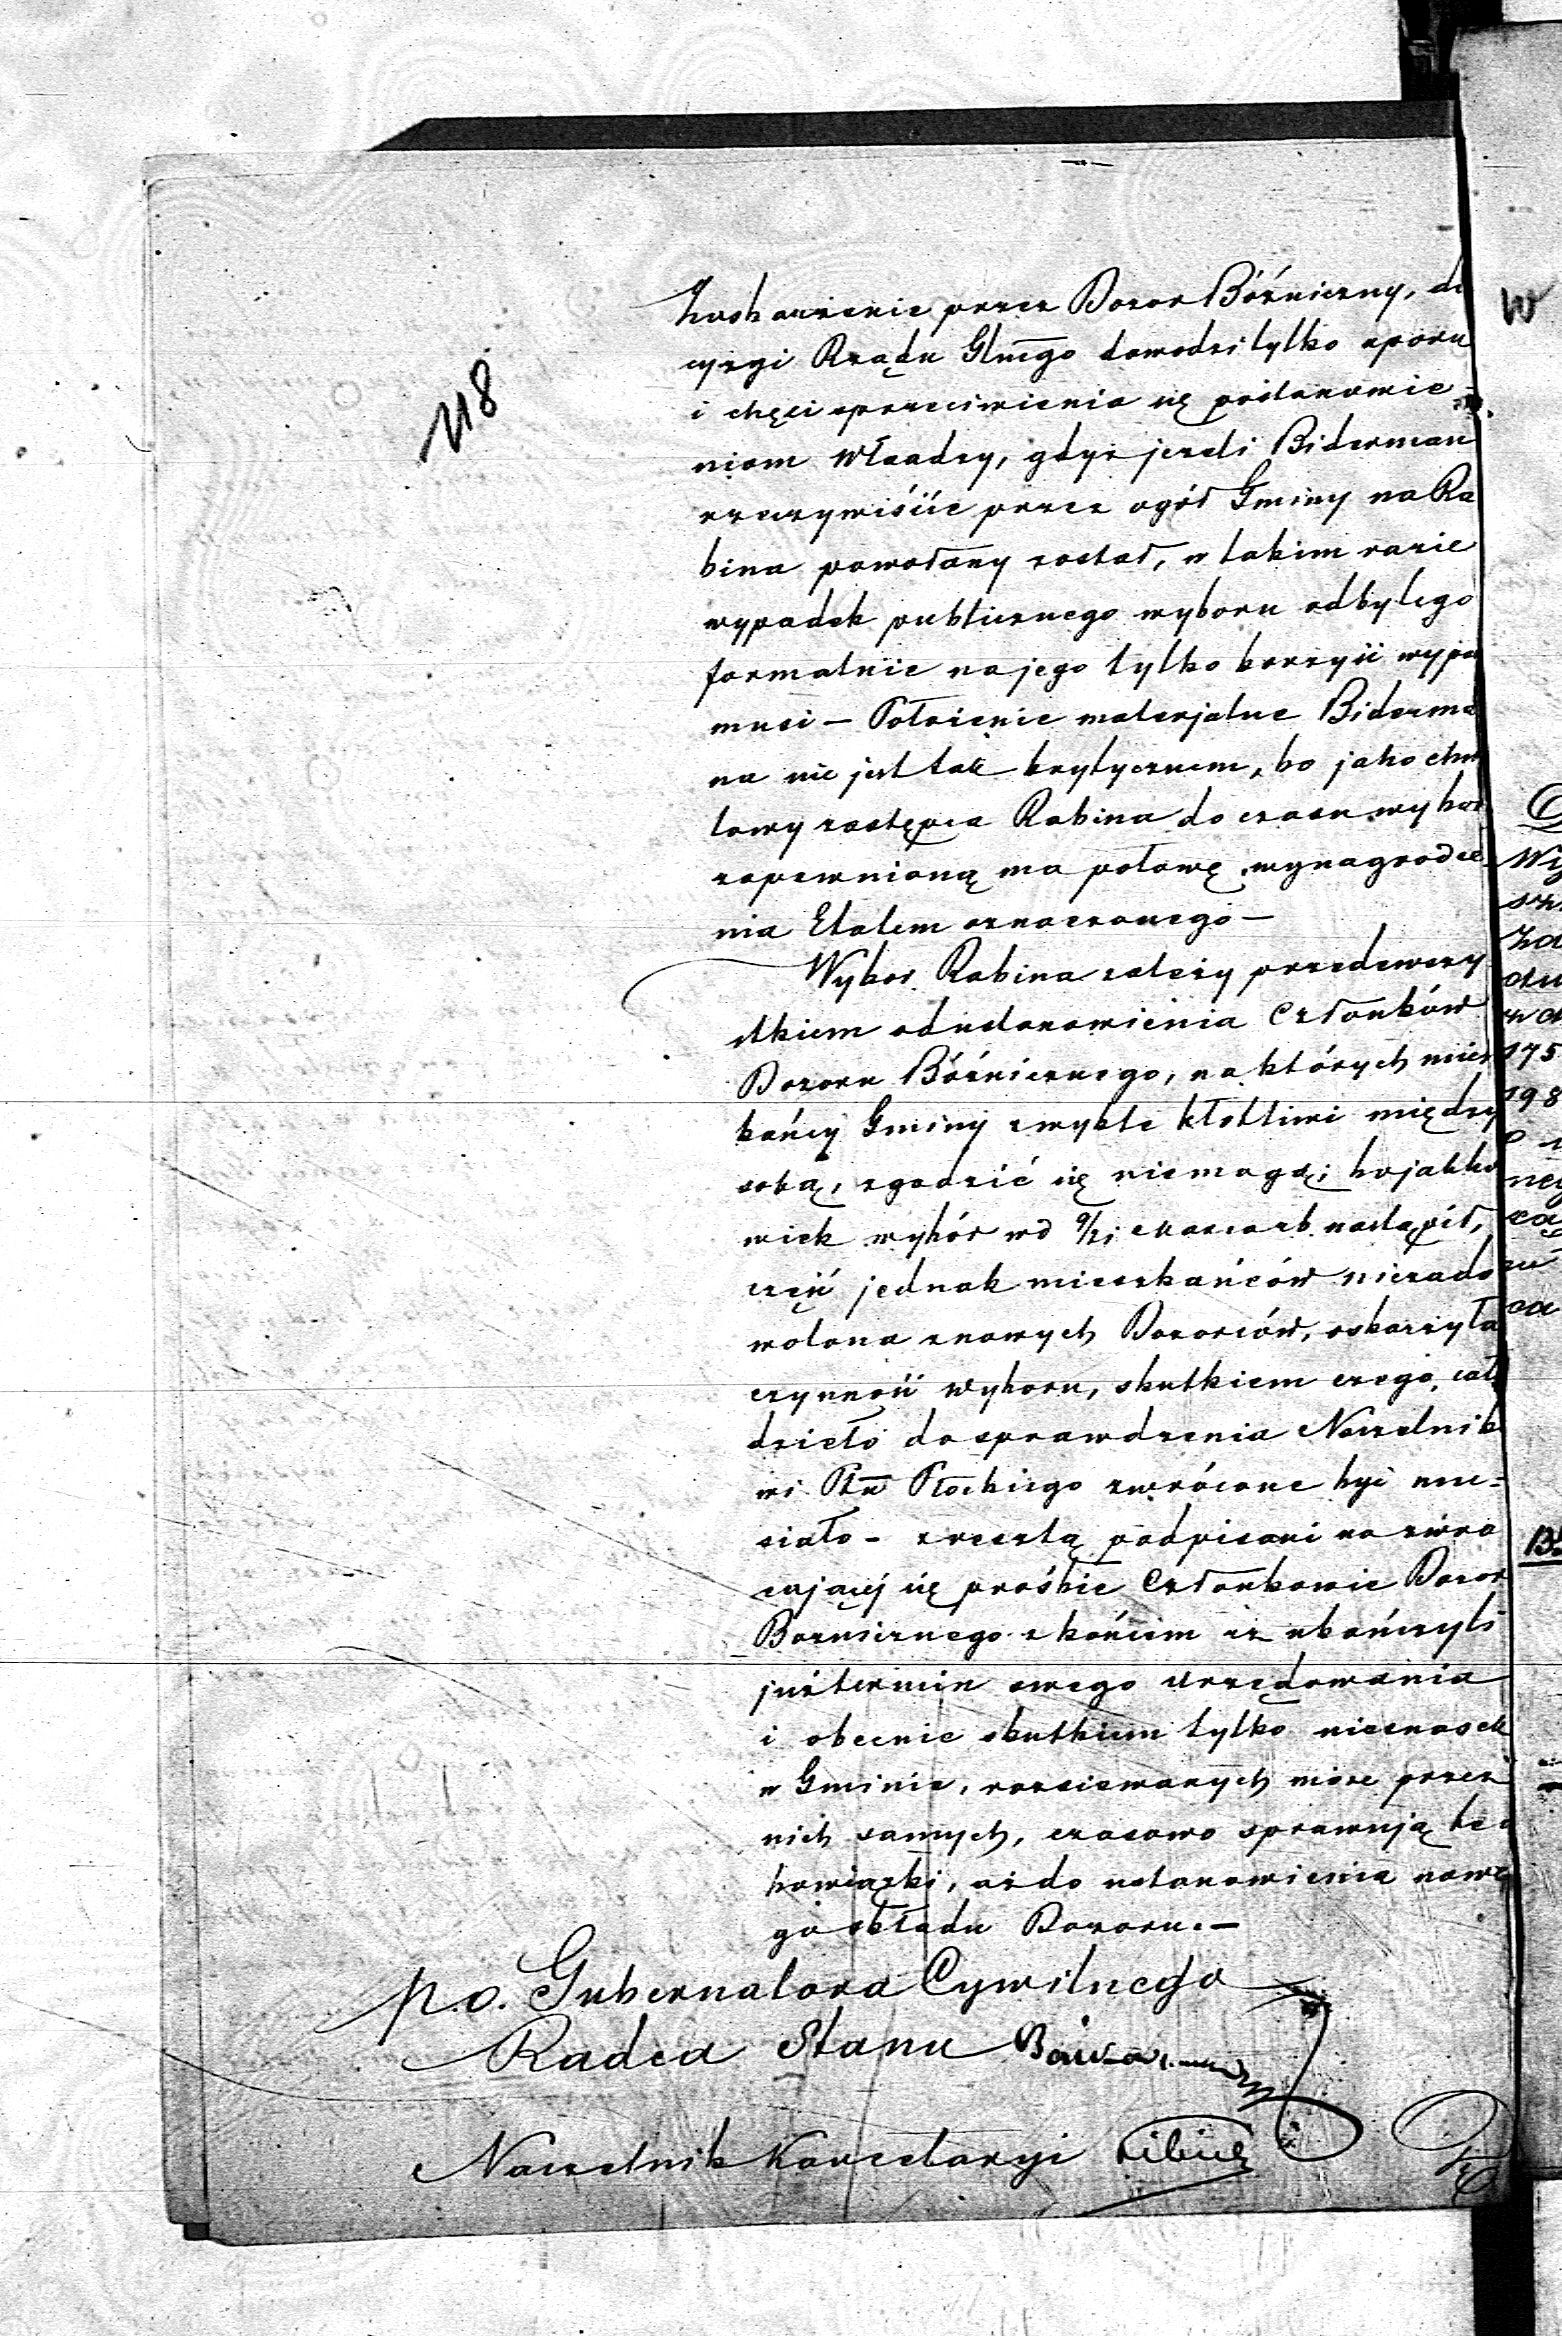 118
Zaskarżenie przez Dozor Bóżniczny, de
cyzyi Rządu Glnego dowodzi tylko uporu
i chęci sprzeciwienia się postanowie=
niom Władzy, gdyż jeżeli Biderman
rzeczywiście przez ogół Gminy na Ra
bina powołany został, w takim razie
wypadek publicznego wyboru odbytego
formalnie na jego tylko korzyść wypa
musi — Położenie materjalne Biderma
na nie jest tak krytycznem, bo jako chwi
lowy zastępca Rabina do czasu wybor
zapewnioną ma połowę wynagrodze
nia Etatem oznaczonego —
Wybor Rabina zależy przedewszy
stkiem od ustanowienia Członków
Dozoru Bóżnicznego, na których miesz
kańcy Gminy zwykle kłótliwi między
sobą, zgodzić się niemogą; bojakko
wiek wybór w d 9/21 Marca rb. nastąpił,
część jednak mieszkańców niezado
wolona z nowych Dozorców, oskarżyła
czynność wyboru, skutkiem czego cał
dzieło do sprawdzenia Naczelnik
wi Ptu Płockiego zwrócone być mu=
siało – zresztą podpisani na zwra
cającej się prośbie Członkowie Dozor
Bożnicznego z końcem r z ukończyli
już termin swego urzędowania
i obecnie skutkiem tylko niesnasek
w Gminie, rozsiewanych może przez
nich samych, czasowo sprawują te o
bowiązki, aż do ustanowienia nowe
go składu Dozoru. —
p. o. Gubernatora Cywilnego
Radca Stanu
Naczelnik Kancelaryi